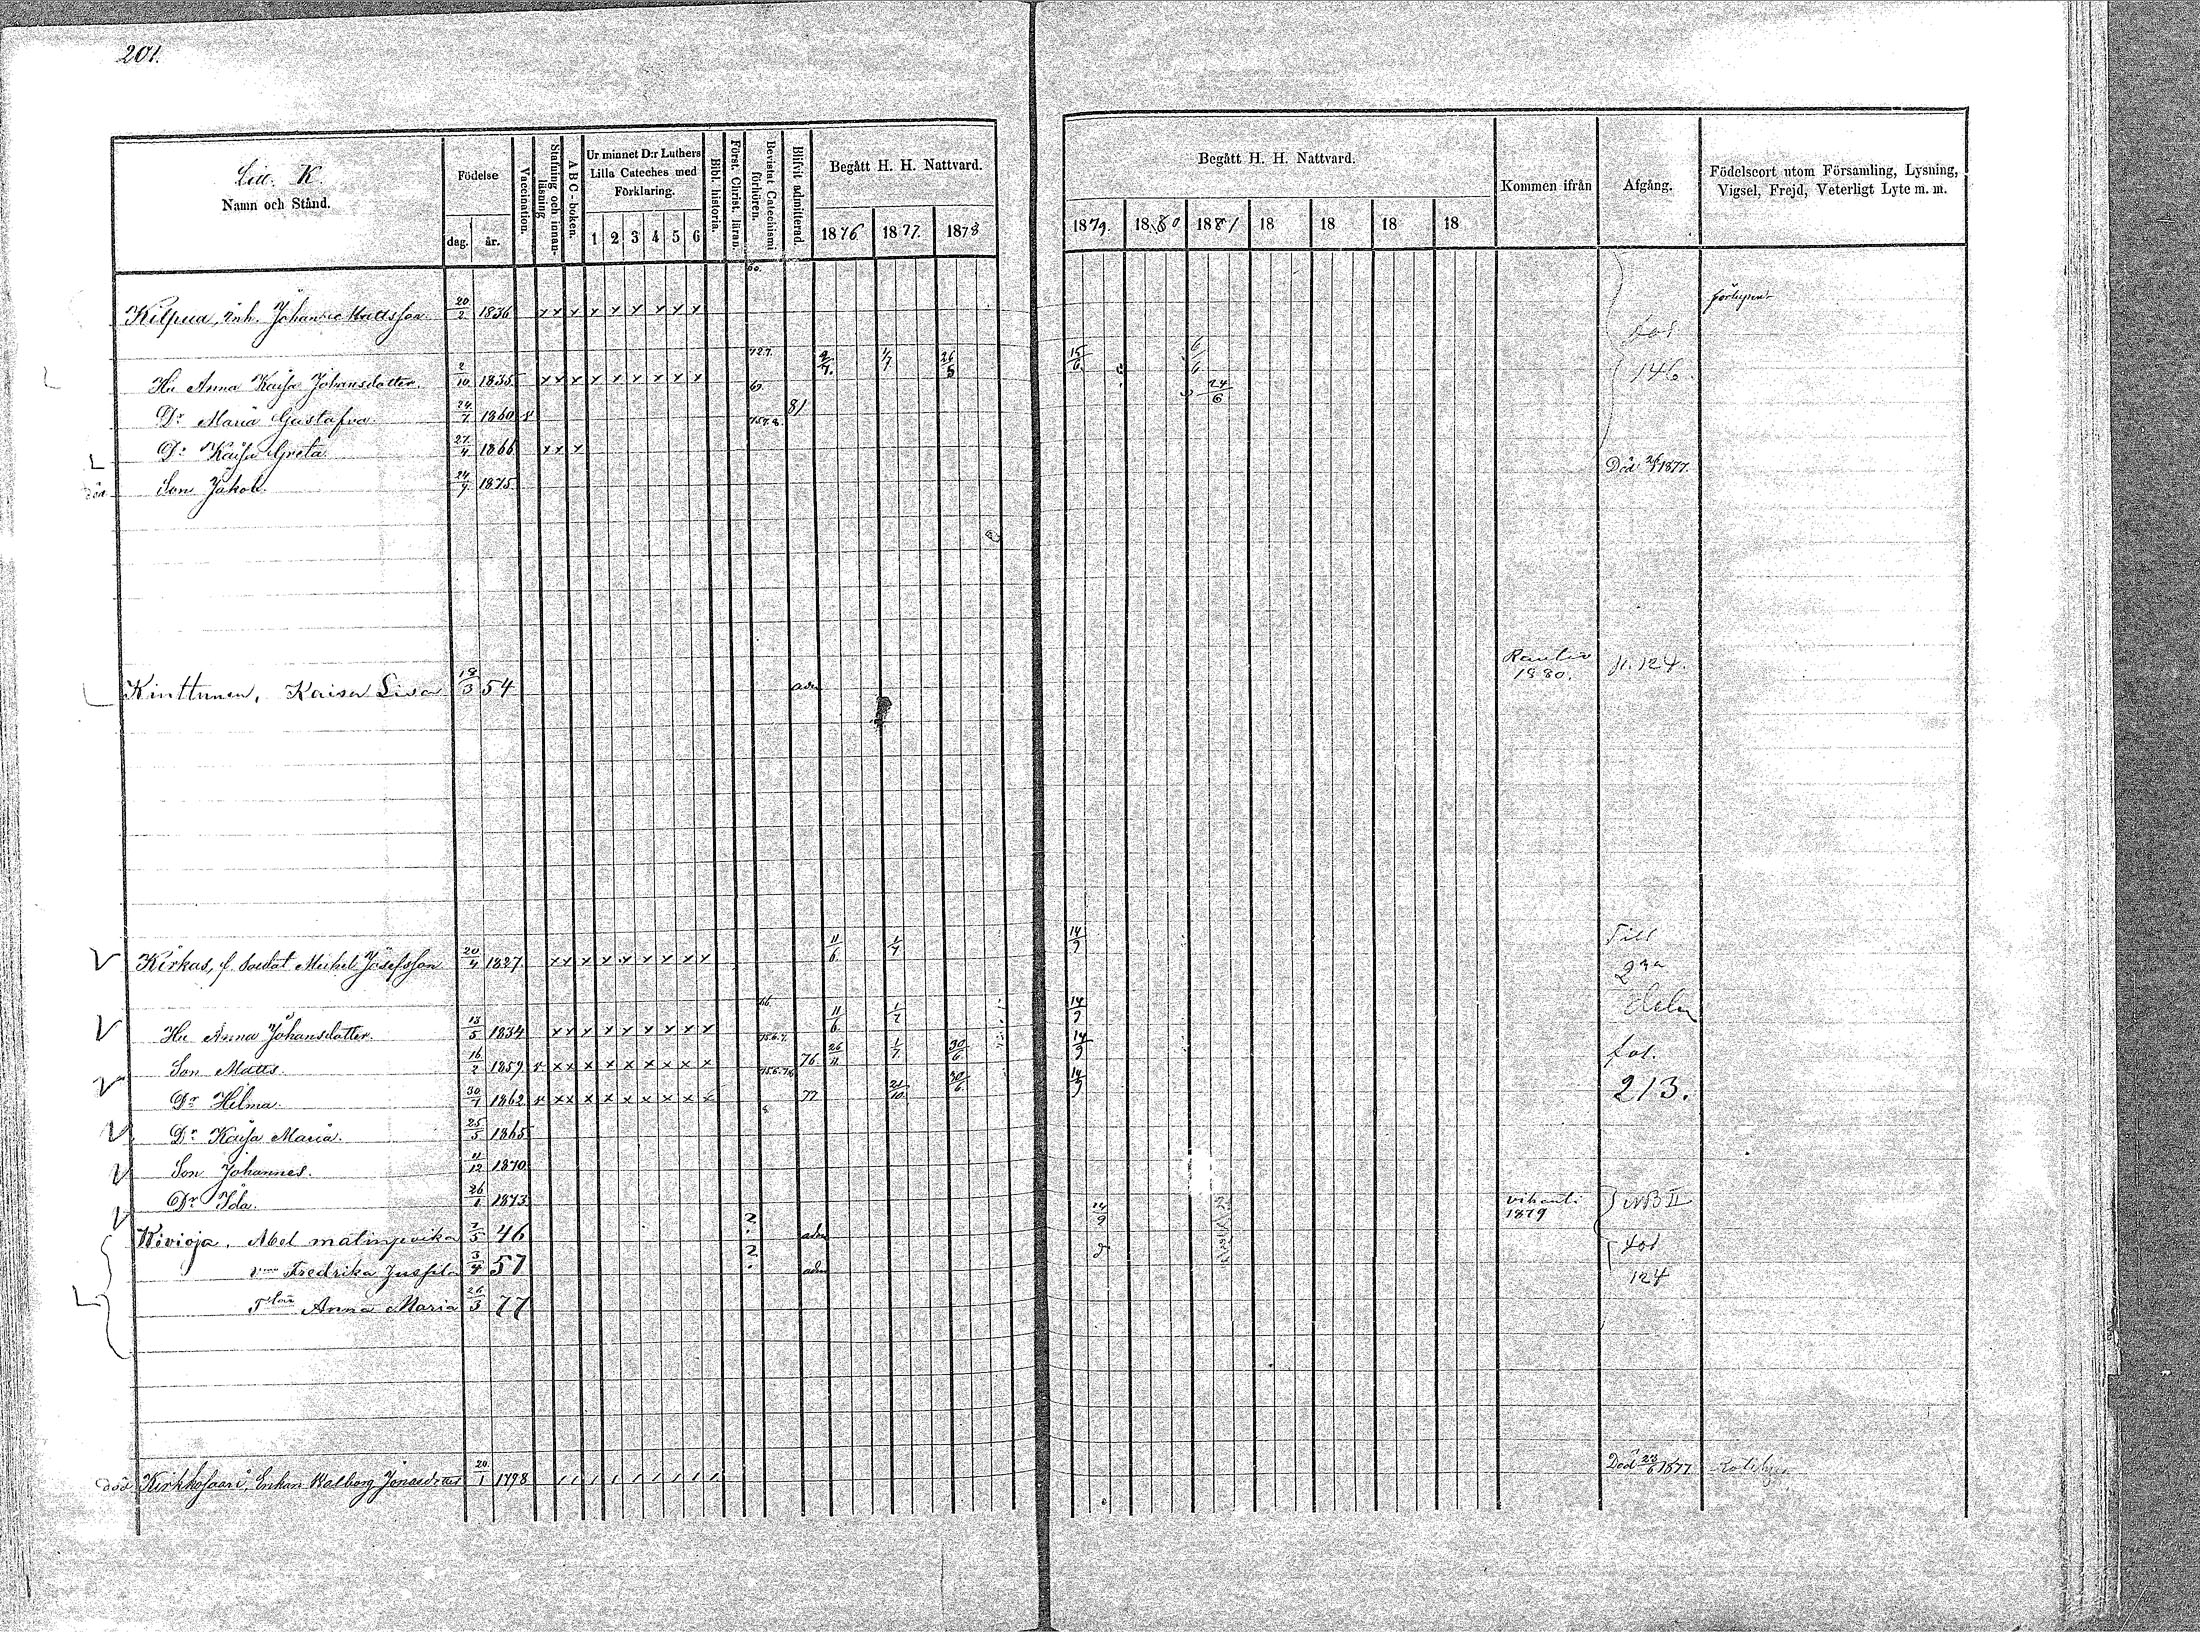 201.
Litt. K.
Namn och Stånd.
Födelse
dag. år.
Vaccination.
Stafning och innanläsning
A B C - boken.
Ur minnet D:r Luthers Lilla Cateches med Förklaring.
1 2 3 4 5 6
Bibl. historia.
Först. Christ. läran.
Bevistat Catechismi förhören.
Blifvit admitterad.
Begått H. H. Nattvard.
1876 1877. 1878
Begått H. H. Nattvard.
1879. 1880 1881 18 18 18 18
Kommen ifrån
Afgång.
Födelseort utom Församling, Lysning, Vigsel, Frejd, Veterligt Lyte m. m.
Kilpua, Inh. Johannes Mattsson 20/2 1836 x x x x x x x x x 60.
fol
146.
Hu Anna Kajsa Johansdotter. 2/10 1835 x x x x x x x x x 727. 2/7. 1/7 26/5 15/6
Dr Maria Gustafva 24/7 1860 x 81 24/6
Dr Kajsa Greta 27/4 1866 x x x
död Son Jakob. 24/9 1875 Död 1877.
Kinttunen, Kaisa Lisa 18/3 54 adm Rautio 1880. fl. 124.
Kirkas, f. Soldat Michel Josefsson 20/4 1827. x x x x x x x x x 11/6. 1/7 14/9 Till
2ra
Hu Anna Johansdotter. 13/5 1834 x x x x x x x x x 66 11/6. 1/7 14/9 delen
Son Matts. 16/2 1859 x x x x x x x x x x 76. 26/11 1/7 30/6 14/9 fol.
Dr Hilma. 30/7 1862 x x x x x x x x x x 77 21/10 30/6 14/9 213.
Dr Kajsa Maria. 25/5 1865
Son Johannes. 11/12 1870
Dr Ida. 26/1 1873
Kivioja, Abel matinpoika 7/5 46 2. adm 14/9 vihanti 1879 NB II
fol
v Fredrika Jusfil 3/4 57 2. adm 124
Anna Maria 26/3 77
död Kirkkosaari, Enkan Walborg Jonasdotter 20/1 1798 Död 28/6 1877